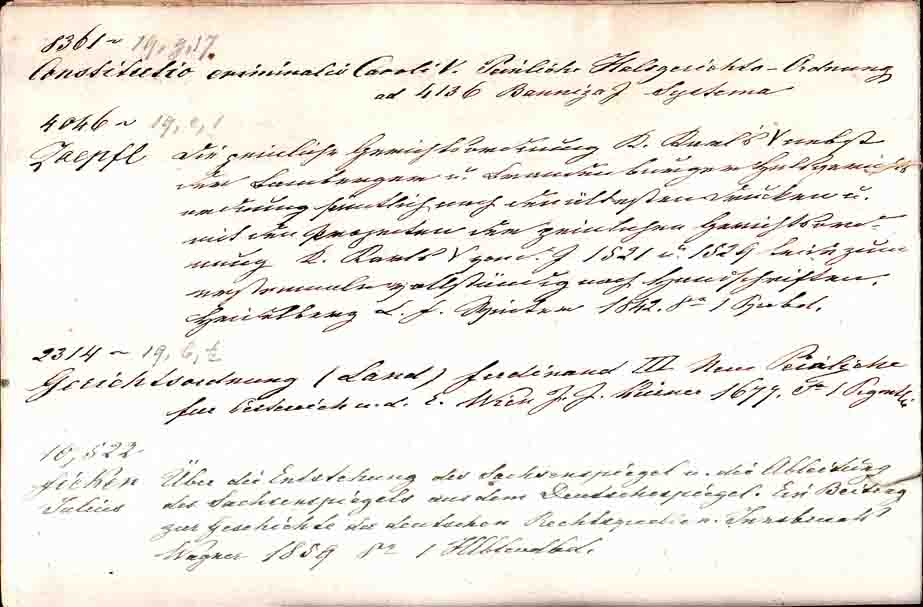 8361 ~ 19, g, 17.
Constitutio criminalis Caroli V. Peinliche Halsgerichts-Ordnung
ad 4136 Banniza J Systema
4046 ~ 19, e, 1
Zoepfl Die peinliche Gerichtsordnung K. Karl's V nebst
der Bamberger u. Brandenburger Halsgerichts
ordnung sämtlich nach den ältesten Drucken u.
mit den Projecten der peinlichen Gerichtsord-
nung K. Karls V von d. J 1521 u. 1529 beide zum
erstenmale vollständig nach Handschriften.
Heidelberg C. F. Winter 1842. 8º 1
2314 ~ 19, 6, ½
Gerichtsordnung (Land) Ferdinand III Neue Peinliche
für Österreich u. d. E. Wien J. J. 1677. 1
10,522
Ficker Über die Entstehung des Sachsenspiegel u. die Ableitung
Julius des Sachsenspiegels aus dem Deutschespiegel. Ein Beitrag
zur Geschichte der deutschen Rechtsquellen. Innsbruck
Wagner 1859 8º 1 Hlblwdbd.